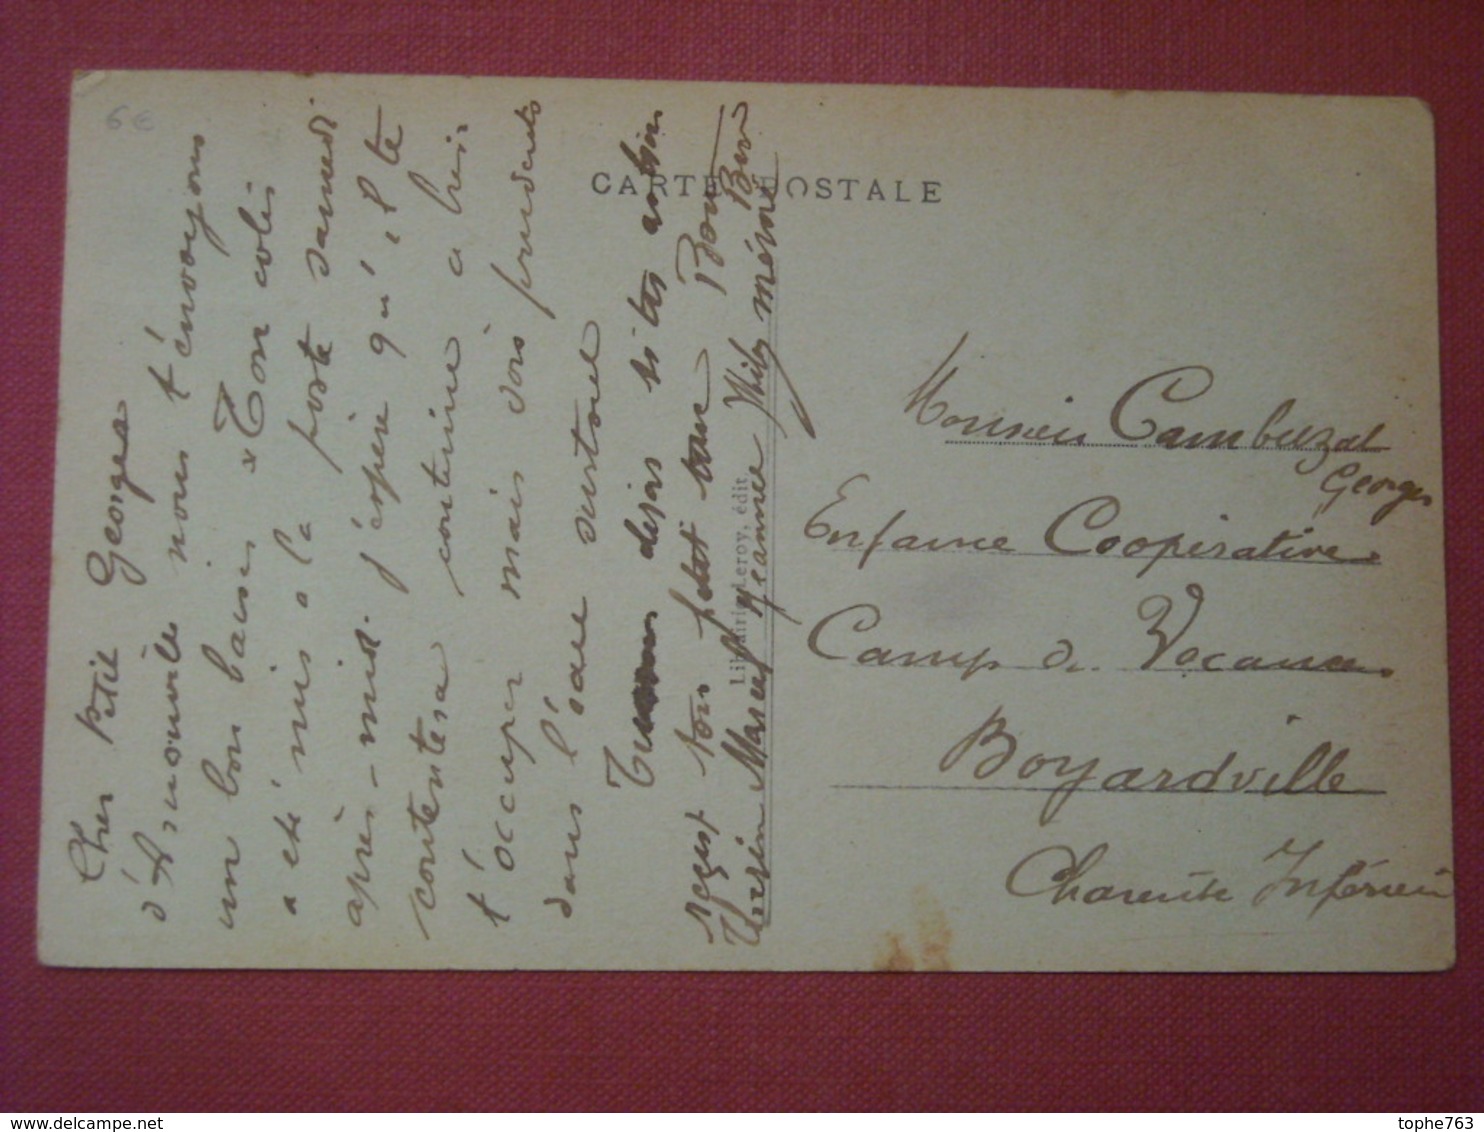 6€
CARTE POSTALE
Cher Petit Georges
d'Arnouville nous t'envoyons
un bon baiser & Ton colis
a été mis a la poste samedi
après-midi. j'espère qu'il te
contentera continue a bien
t'occuper mais sois prudents
dans l'eau surtout
si tes
reçoit ton petit Bon
Marcel Jeanne mémé
Librairie Leroy, édit
Monsieur Cambuzat
Georges
Enfance Coopérative
Camp de Vacances
Boyardville
Charente Inférieur
delcampe.net
tophe763